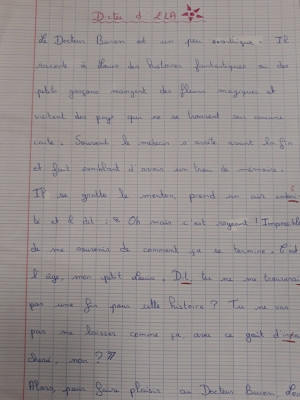 Dictée d'ELLA
Le Docteur Buron est un peu exotique. Il
raconte à Louis des histoires fantastiques où des
petits garçons mangent des fleurs magiques et
visitent des pays qui ne se trouvent sur aucune
carte. Souvent le médecin s'arrête avant la fin
et fait semblant d'avoir un trou de mémoire.
Il se gratte le menton, prend un air
te et il dit : « Oh mais c'est rageant ! Impossible
de me souvenir de comment ça se termine. C'est
l'âge, mon petit Louis. Dit, tu ne me trouverais
pas une fin pour cette histoire ? Tu ne vas
pas me laisser comme ça, avec ce goût d'ina
chevé, non ? »
Alors, pour faire plaisir au Docteur Buron, Lou